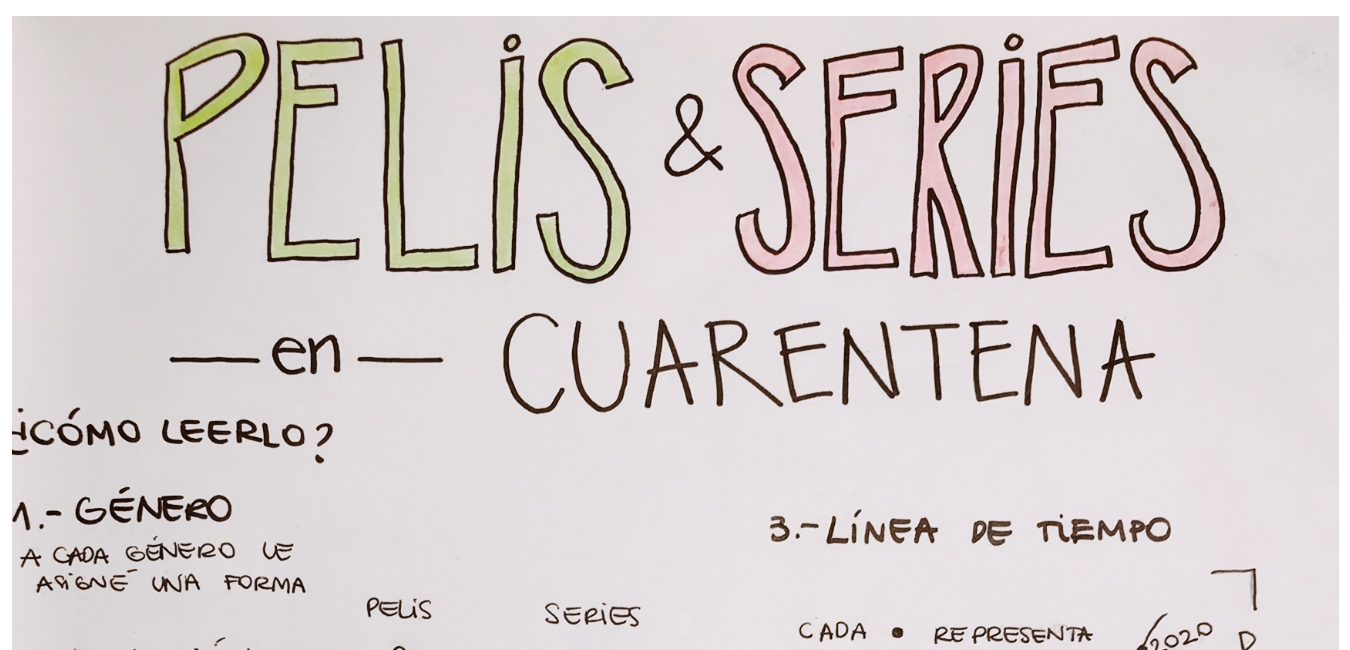 PELIS & SERIES
— en — CUARENTENA
¿CÓMO LEERLO?
1.- GÉNERO
A CADA GÉNERO LE
ASIGNÉ UNA FORMA
PELIS SERIES
3.- LÍNEA DE TIEMPO
CADA • REPRESENTA
2020 D